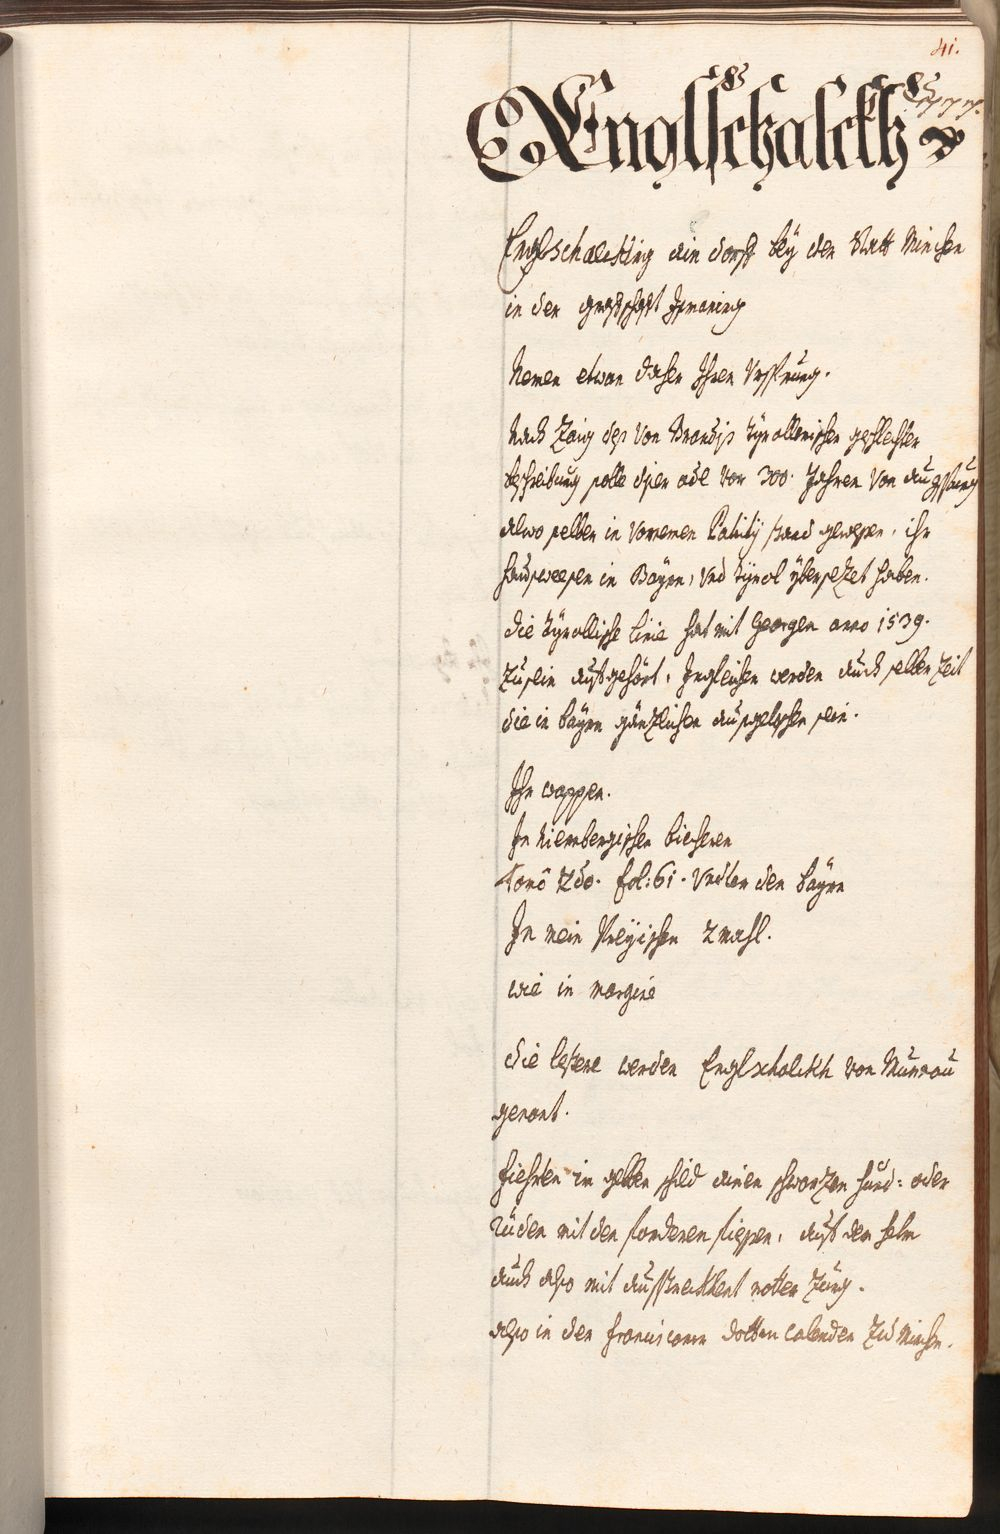 41.
Englschalckh
Englschalcking ain dorff beÿ der Statt Minchen
in der graffschafft Ismaning
Nemen etwan daher Ihren Vrsprung.
Nach Zaig des von Brandis tÿrollerischer geschlechter
beschreibung solle diser adl vor 300. Jahren von Augspurg
alwo selber in vornemen Patricÿ stand gewesen, ihr
hauswesen in Baÿrn, vnd tÿrol ÿbersezet haben.
die tÿrollische linie hat mit Georgen anno 1539.
zu sein aufgehört, Ingleichen werden auch selber zeit
die in baÿrn gänzlichen ausgeloschen sein.
Ihr wappen.
In Niernbergischen biechern
Tomô 2do. fol: 61. Vndter den baÿrn
In mein Preÿischen 2mahl.
wie in margine
die lestere werden Englschalckh von Murnau
genant.
fiehrten in gelben schild ainen schwarzen hund: oder
rüden mit den forderen fiessen, auf dem helm
auch also mit ausstreckhent rotter zung.
also in der franciscaner dotten calender zu Minchen.